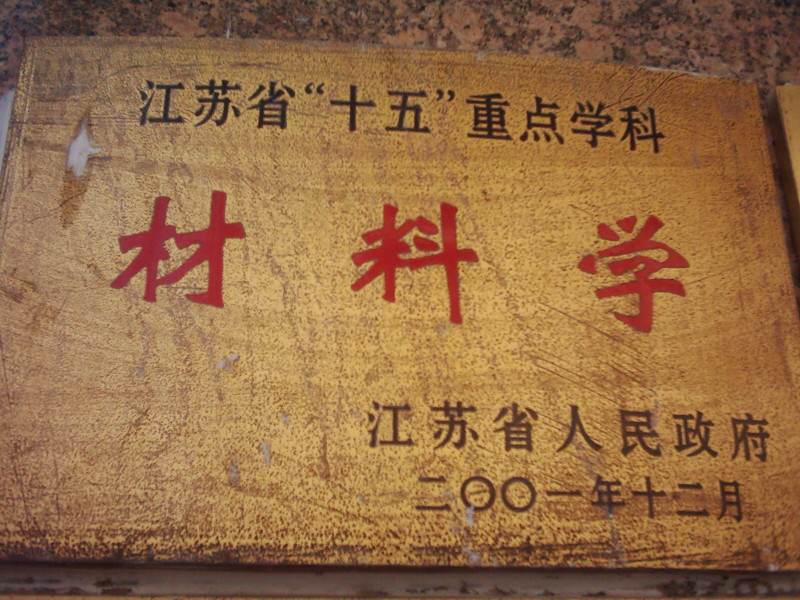 江苏省“十五”重点学科
材料学
江苏省人民政府
二〇〇一年十二月